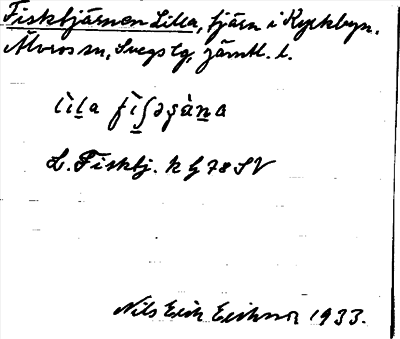 Fisktjärnen Lilla, tjärn i Kyrkbyn.
Älvros sn, Svegs tg, Jämtl. l.
L. Fisktj. k G 78 SV
Nils Erik Eriksson 1933.